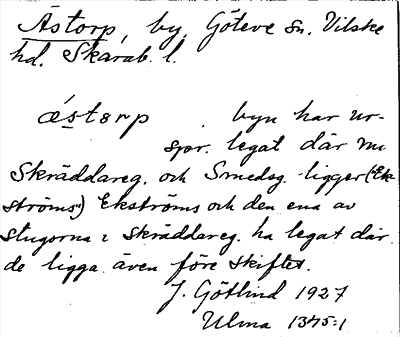 Åstorp, by, Göteve sn. Vilske
hd. Skarab. l.
ǽstɵrp. byn har ur-
spr. legat där nu
Skräddareg. och Smedsg. ligger ("Ek-
ströms") Ekströms och den ena av
stugorna i Skräddareg. ha legat där
de ligga även före skiftet.
J. Götlind 1927
Ulma 1345:1